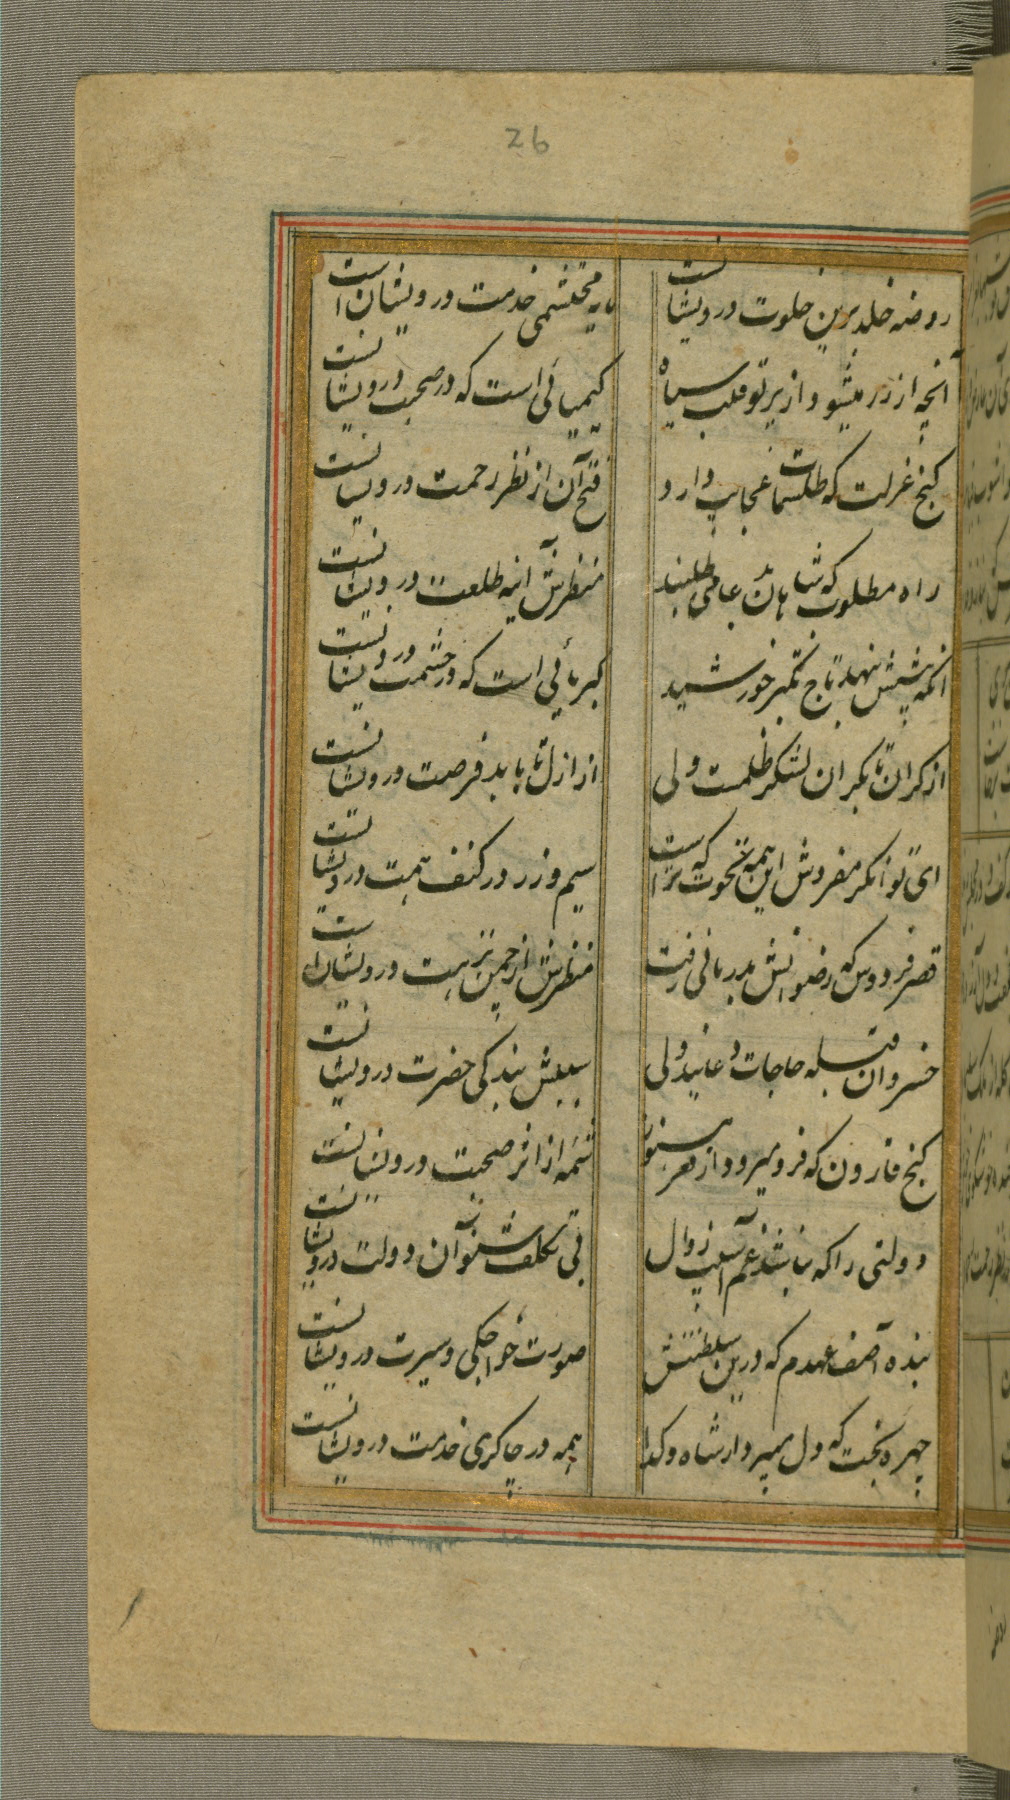 26
روضه خلد برین خلوت درویشانست
مایه محتشمی خدمت درویشان است
آنچه از زر میشود از پرتو قلب سیاه
کیمیائی است که در صحبت درویشانست
کنج عزلت که طلسمات عجایب دارد
فتح آن از نظر رحمت درویشانست
راه مطلوب که شاهان بدعا می طلبند
منظرش آینه طلعت درویشانست
آنکه پیشش بنهد تاج تکبر خورشید
کبریائی است که در حشمت درویشانست
از کران تا بکران لشکر ظلمت ولی
از ازل تا بابد فرصت درویشانست
ای توانگر مفروش این همه نخوت که ترا است
سیم و زر در کنف همت درویشانست
قصر فردوس که رضوانش بدربانی رفت
منظرش از چمن نزهت درویشان است
خسروان قبله حاجات دعایند ولی
سببش بندگی حضرت درویشانست
کنج قارون که فرو میرود از قهر هنوز
شمه از اثر صحبت درویشانست
دولتی را که نباشد غم آسیب زوال
بی تکلف بشنو آن دولت درویشانست
بنده آصف عهدم که درین سلطنتش
صورت خواجکی و سیرت درویشانست
چهره بخت که دل میبرد از شاه و کدا
همه در چاکری خدمت درویشانست